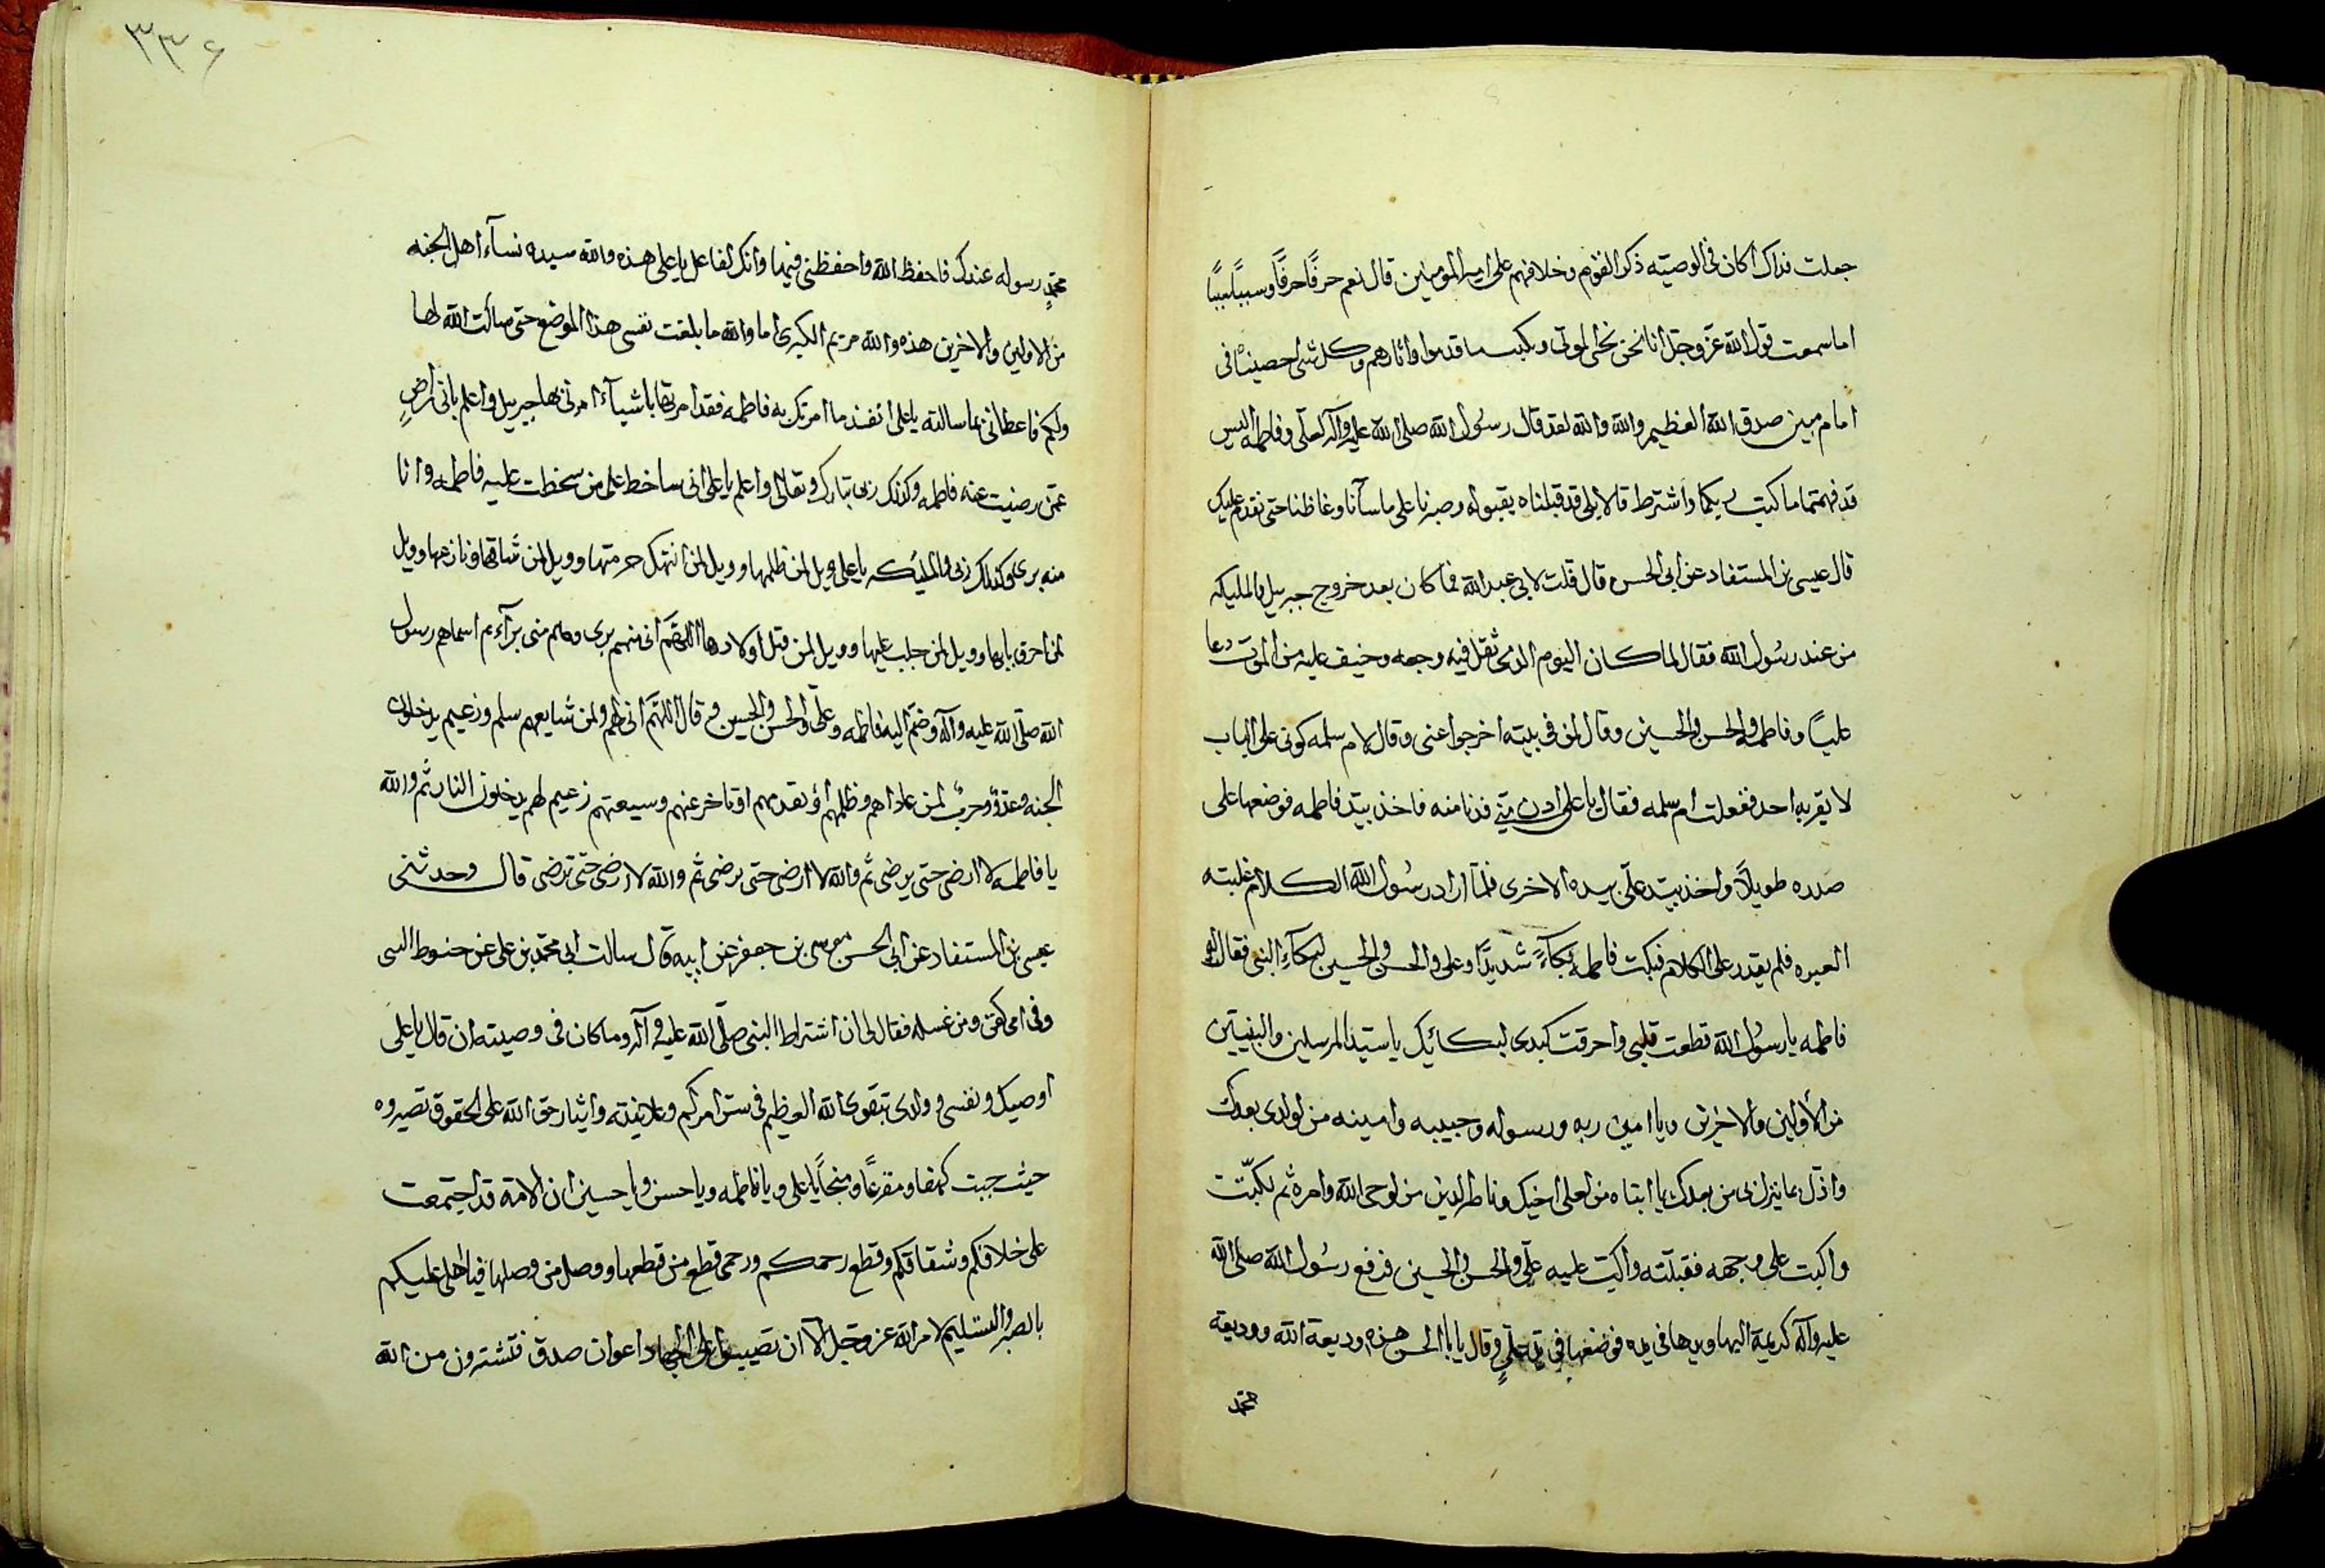 جعلت فداك اكان في الوصيته ذكر القوم وخلافهم على امير المومنين قال نعم حرفًا حرفًا وسببًا سببًا
اما سمعت قول الله عز وجل انا نحن نحى الموتى ونكتب ما قدموا واثارهم وكل شى احصيناه فى
امام مبين صدق الله العظيم والله والله لقد قال رسول الله صلى الله عليه وآله لعلى وفاطمه اليس
قد فهمتما ما كتبت اليكما واشترط قالا بلى قد قبلناه بقبوله وصبرنا على ما سآنا وغاظنا حتى نقدم عليك
قال عيسى بن المستفاد عن ابى الحسن قال قلت لابى عبد الله فما كان بعد خروج جبرييل والمليكه
من عند رسول الله فقال لما كان اليوم الذى ثقل فيه وجعه وخيف عليه من الموت دعا
عليًا وفاطمه والحسن والحسين وقال لمن فى بيته اخرجوا عنى وقال لام سلمه كونى على الباب
لا يقربه احد ففعلت ام سلمه فقال يا على ادن منى فدنا منه فاخذ بيد فاطمه فوضعها على
صدره طويلًا واخذ بيد على بيده الاخرى فلما اراد رسول الله الكلام غلبته
العبره فلم يقدر على الكلام فبكت فاطمه بكآءً شديدًا وعلى والحسن والحسين لبكآء النبى فقالت
فاطمه يا رسول الله قطعت قلبى واحرقت كبدى لبكائيك يا سيد المرسلين والنبيين
من الأولين والاخرين ويا امين ربه ورسوله وحبيبه وامينه من لولدى بعدك
واذل ما ينزل بى من بعدك يا ابتاه من لعلى اخيك وناصر الدين من لوحى الله وامره ثم بكت
واكبت على وجهه فقبلته واكبت عليه على والحسن والحسين فرفع رسول الله صلى الله
عليه وآله كريمة اليها ويدها فى يده فوضعها فى يد على وقال يا ابا الحسن هذه وديعة الله ووديعة
محمد
٣٣۶
محمدٍ رسوله عندك فاحفظ الله واحفظنى فيها وانك لفاعل يا على هذه والله سيده نسآء اهل الجنه
من الاولين والاخرين هذه والله مريم الكبرى اما والله ما بلغت نفسى هذا الموضع حتى سألت الله لها
ولكم فاعطانى ما سالته يا على انفذ ما امرتك به فاطمه فقد امرتها باشيآء امرنى بها جبرييل واعلم بانى راضٍ
عمن رضيت عنه فاطمه وكذلك ربى تبارك وتعالى واعلم يا على انى ساخط على من سخطت عليه فاطمه وانا
منه برى وكذلك ربى والمليكه يا على ويل لمن ظلمها وويل لمن انتهك حرمتها وويل لمن شاقها ونازعها وويل
لمن احرق بابها وويل لمن جلب عليها وويل لمن قتل اولادها اللهم انى منهم برى وهم منى برآء ثم اسماهم رسول
الله صلى الله عليه وآله وضم اليه فاطمه وعلى والحسن والحسين و قال اللهم انى لهم ولمن شايعهم سلم وزعيم يدخلون
الجنه وعدو وحرب لمن عاداهم وظلمهم او تقدمهم او تاخر عنهم وشيعتهم زعيم لهم يدخلون النار ثم والله
يا فاطمه لا ارضى حتى ترضى ثم والله لا ارضى حتى ترضى ثم والله لا ارضى حتى ترضى قال وحدثنى
عيسى بن المستفاد عن ابى الحسن موسى بن جعفر عن ابيه قال سالت ابى محمد بن على عن حنوط النبى
وفى اى كفن ومن غسله فقال لى ان اشتراط النبى صلى الله عليه وآله وما كان فى وصيته ان قال يا على
اوصيك ونفسى وولدى بتقوى الله العظيم فى ستر امركم وعلانيته وايثار حق الله على الحقوق تصيروه
حيث جبت كهفا ومفزعًا ومنجًا يا على ويا فاطمه ويا حسن ويا حسين ان الامة قد اجتمعت
على خلافكم وشقاقكم وقطع رحمكم ورحمى قطع من قطعها ووصل من وصلها فيا اهلى عليكم
بالصبر والتسليم لامر الله عز وجل الا ان تصيبوا على الجهاد اعوان صدق فتشترون من الله